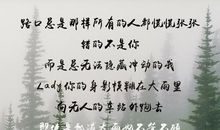 路口总是那样所有的人都慌慌张张
错的不是你
而是总无法隐藏冲动的我
Lady你的身影模糊在大雨里
向无人的车站外跑去